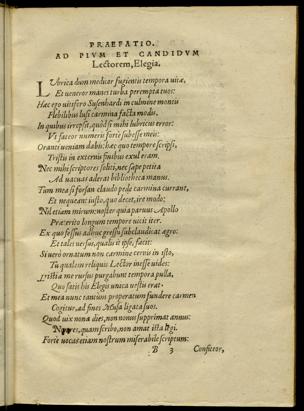 PRAEFATIO.
AD PIVM ET CANDIDVM
Lectorem, Elegia.
LVbrica dum meditor fugientis tempora vitæ,
Et veneror manes turba perempta tuos:
Hæc ego vitifero Susenhardi in culmine montis
Flebilibus lusi carmina facta modis.
In quibus irrepsit, quòd si mihi lubricus error:
Vt fateor numeris forte subesse meis:
Oranti veniam dabis: hæc quo tempore scripsi,
Tristis in externis finibus exul eram.
Nec mihi scriptores soliti, nec sæpe petita
Ad vacuas aderat bibliotheca manus.
Tum mea si forsan claudo pede carmina currant,
Et nequeant iusto, quo decet, ire modo:
Nil etiam mirum: noster quia paruus Apollo
Præterito longum tempore vicit iter.
Ex quo fessus adhuc gressu subclaudicat ægro:
Et tales versus, qualis it ipse, facit:
Si verò ornatum non carmine cernis in isto,
Tu qualem reliquis Lector inesse vides:
Tristitiæ me rursus purgabunt tempora pulla,
Quo satis his Elegos vnica vestis erat.
Et mea nunc tantùm properatum fundere carmen
Cogitur, ad fines Musa ligata suos.
Quod vix nona dies, non nonus supprimat annus:
quam scribo, non amat ista
Forte vocas etiam nostrum miserabile scriptum:
B 3 Confiteor,